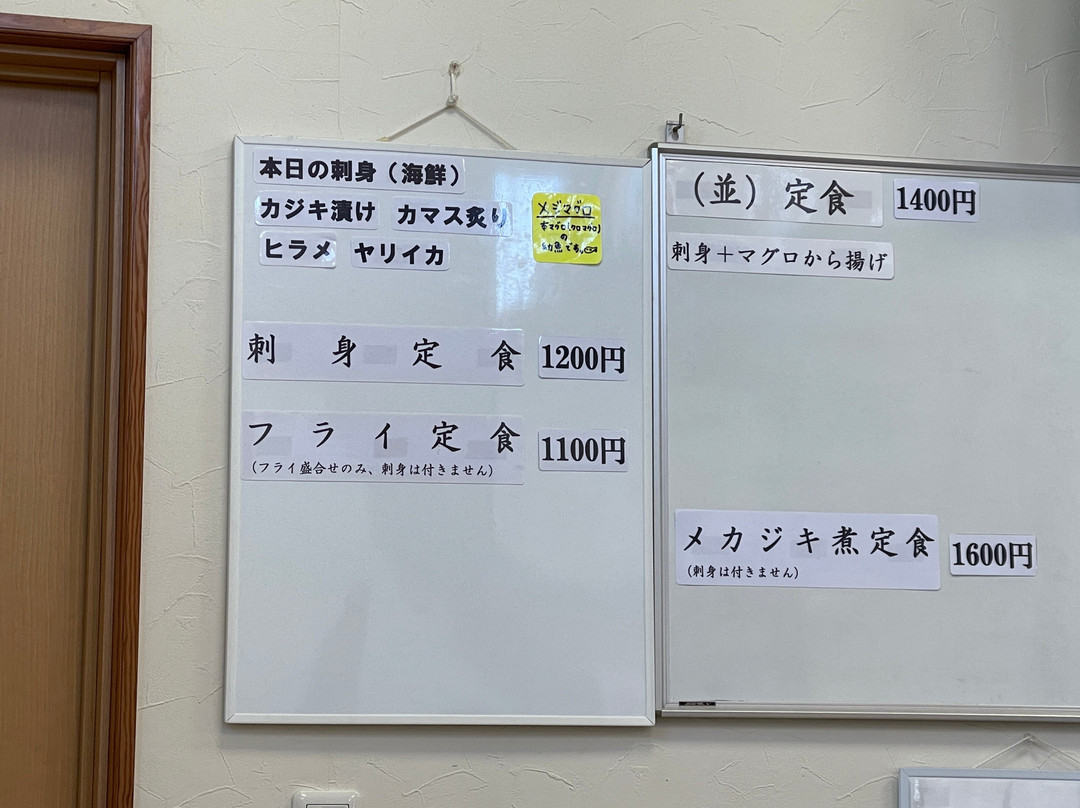 本日の刺身（海鮮）
カジキ漬け カマス炙り
ヒラメ ヤリイカ
メジマグロ
本マグロ(クロマグロ)
の
幼魚です。
刺身定食 1200円
フライ定食 1100円
（フライ盛合せのみ、刺身は付きません）
（並）定食 1400円
刺身＋マグロから揚げ
メカジキ煮定食 1600円
（刺身は付きません）